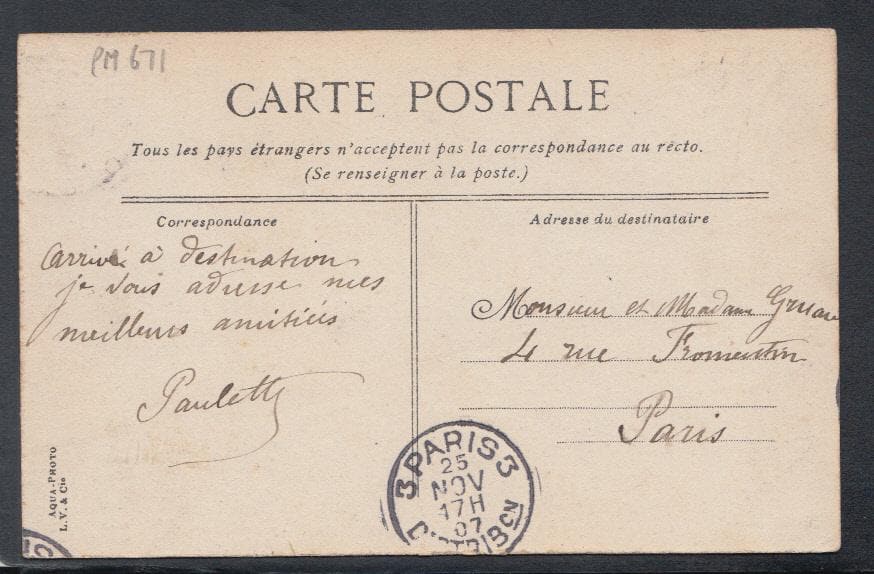 PM 671
CARTE POSTALE
Tous les pays étrangers n'acceptent pas la correspondance au recto.
(Se renseigner à la poste.)
Correspondance
Arrivée à destination
je vous adresse mes
meilleurs amitiés
Paulette
Adresse du destinataire
Monsieur et Madame
4 rue Fromentin
Paris
3 PARIS 3
25
NOV
17H
07
DISTRIBON
AQUA-PHOTO
L. V. & Cie